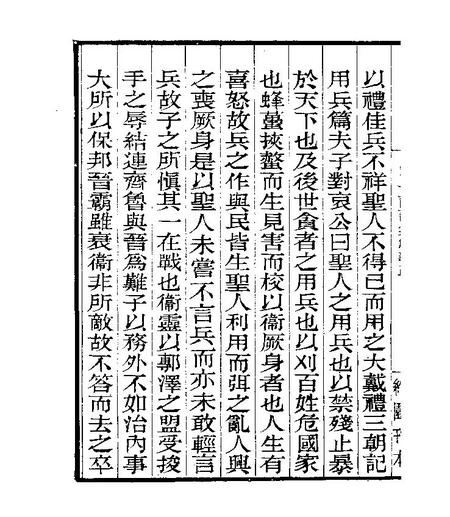 以禮佳兵不祥聖人不得已而用之大戴禮三朝記
用兵篇夫子對哀公曰聖人之用兵也以禁殘止暴
於天下也及後世貪者之用兵也以刈百姓危國家
也蜂蠆挾螫而生見害而校以衞厥身者也人生有
喜怒故兵之作與民皆生聖人利用而弭之亂人興
之喪厥身是以聖人未嘗不言兵而亦未敢輕言
兵故子之所愼其一在戰也衞靈以郭澤之盟受捘
手之辱結連齊魯與晉爲難子以務外不如治內事
大所以保邦晉霸雖衰衞非所敵故不答而去之卒